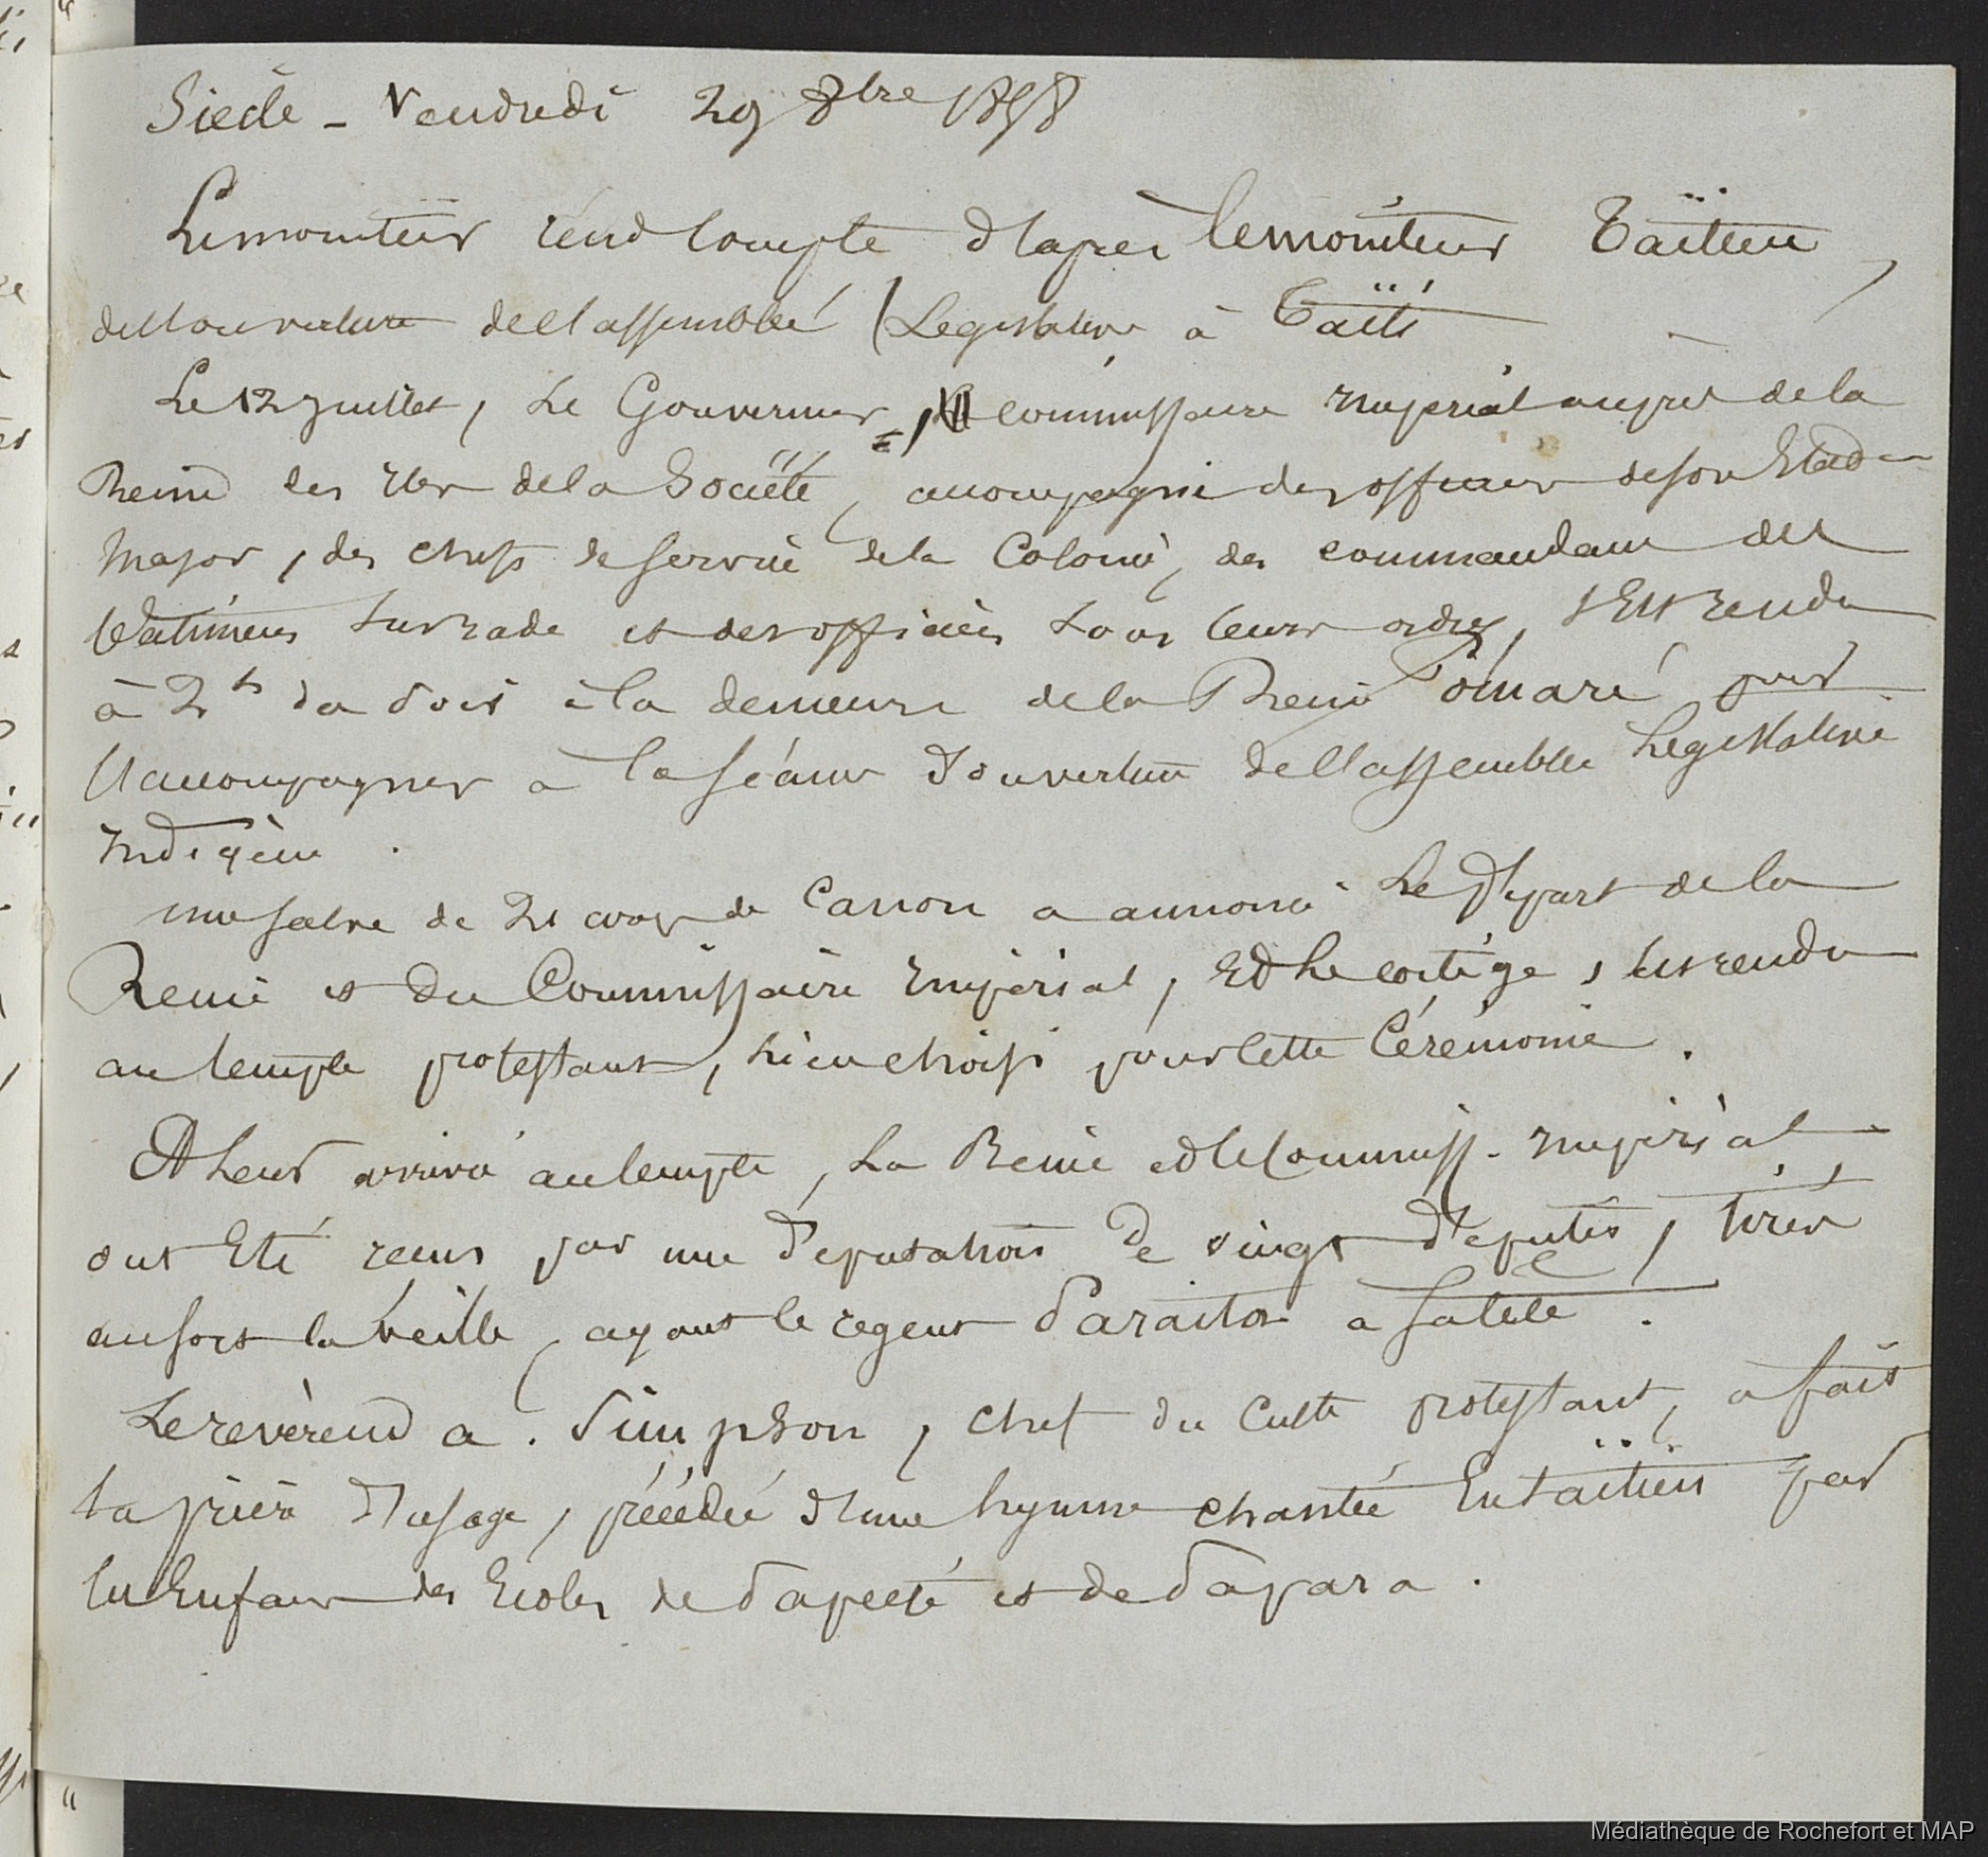 Siecle - Vendredi 29 8bre 1858
Le moniteur rend compte d'apres le moniteur Taïtien,
de l'ouverture de l'assemblée Legislative à Taïti
Le 12 juillet, Le Gouverneur, commissaire imperial auprès de la
Reine des Iles de la Société, accompagné des officiers de son Etat
Major, des chefs de service de la Colonie, des commandans des
bâtimens sur rade et des officiers sous leurs ordres, s'est rendu
à 2h du soir à la demeure de la Reine Pomaré pour
l'accompagner à la séance d'ouverture de l'assemblée Legislative
indigène.
une salve de 21 coups de canon a annoncé Le départ de la
Reine et du Commissaire impérial, Et le cortége s'est rendu
au temple protestant, lieu choisi pour cette Cérémonie.
A leur arrivée au temple, La Reine et le Commiss. impérial
ont Eté recus par une députation de vingt députés, tirés
au sort la veille, ayant le regent Paraita a sa tête.
Le revèrend a. Simpson, chef du culte protestant, a fait
la prière d'usage, précédée d'une hymne chantée En taïtien par
les Enfans des Ecoles de Papeeté et de Papara.
Médiathèque de Rochefort et MAP